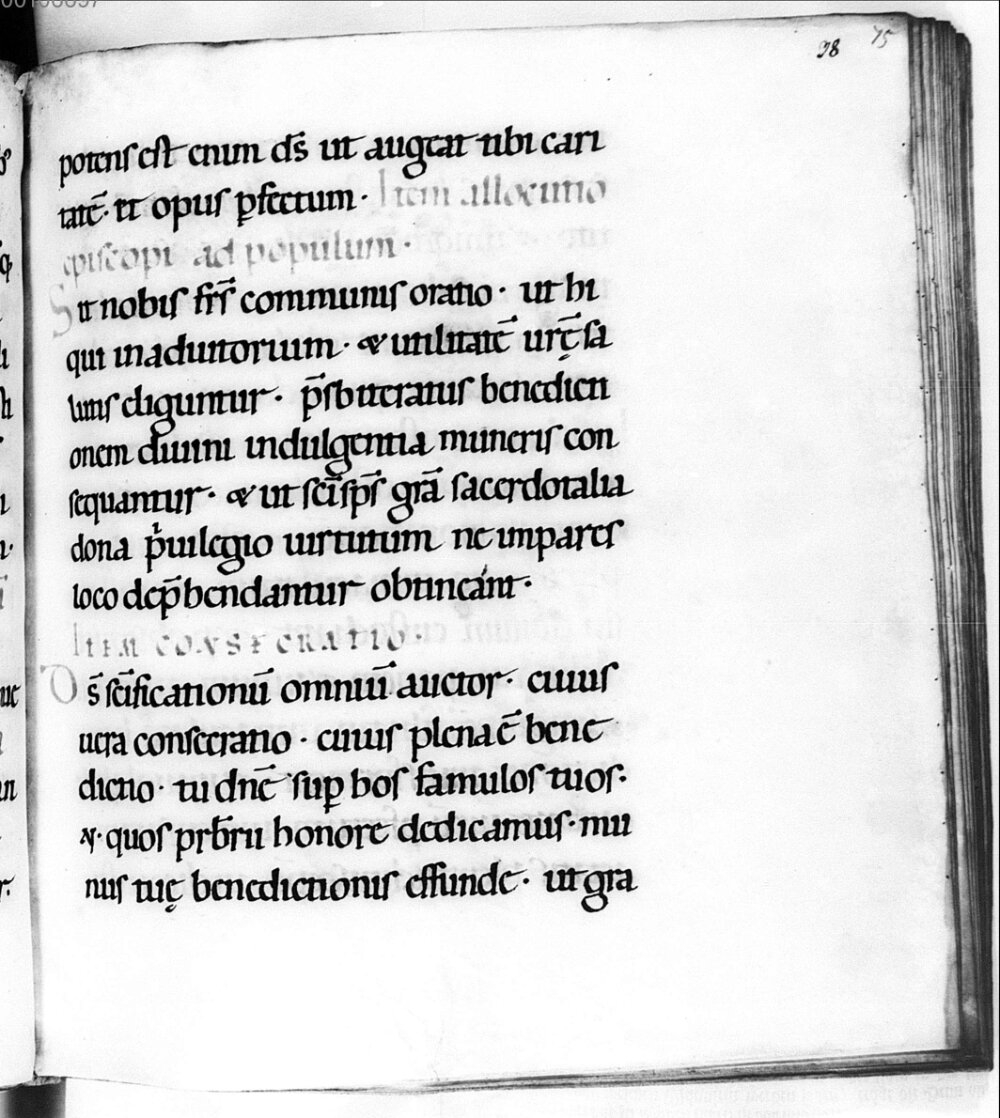 98 75
potens est enim ds̄ ut augeat tibi cari
tatē· et opus ꝑfectum· Item allocutio
episcopi ad populum·
Sit nobis frs̄ communis oratio· ut hi
qui in adiutorium· & utilitatē urę̄ sa
lutis eliguntur· p̄sbiteratus benedicti
onem diuini indulgentia muneris con
sequantur· & ut sc̄i sp̄s grā sacerdotalia
dona p̍uilegio uirtutum ne impares
loco dep̄hendantur obtineant·
ITEM CONSECRATIO·
Ds̄ sc̄ificationū omniū auctor· cuius
uera consecratio· cuius plena ē bene
dictio· tu dnē sup̱ hos famulos tuos·
&· quos prb̄rii honore dedicamus· mu
nus tuę benedictionis effunde· ut gra